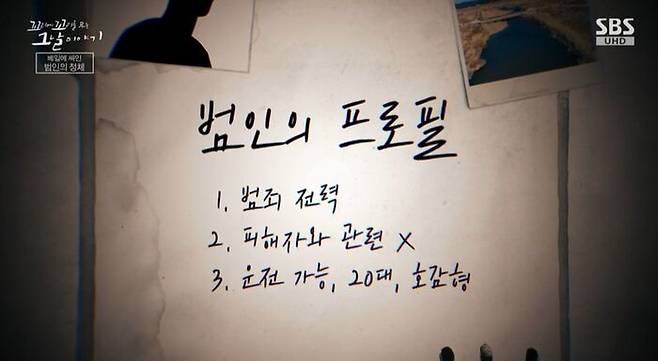 꼬리에 꼬리를 무는
그날 이야기
베일에 싸인
범인의 정체
SBS
UHD
범인의 프로필
1. 범죄 전력
2. 피해자와 관련 X
3. 운전 가능, 20대, 호감형